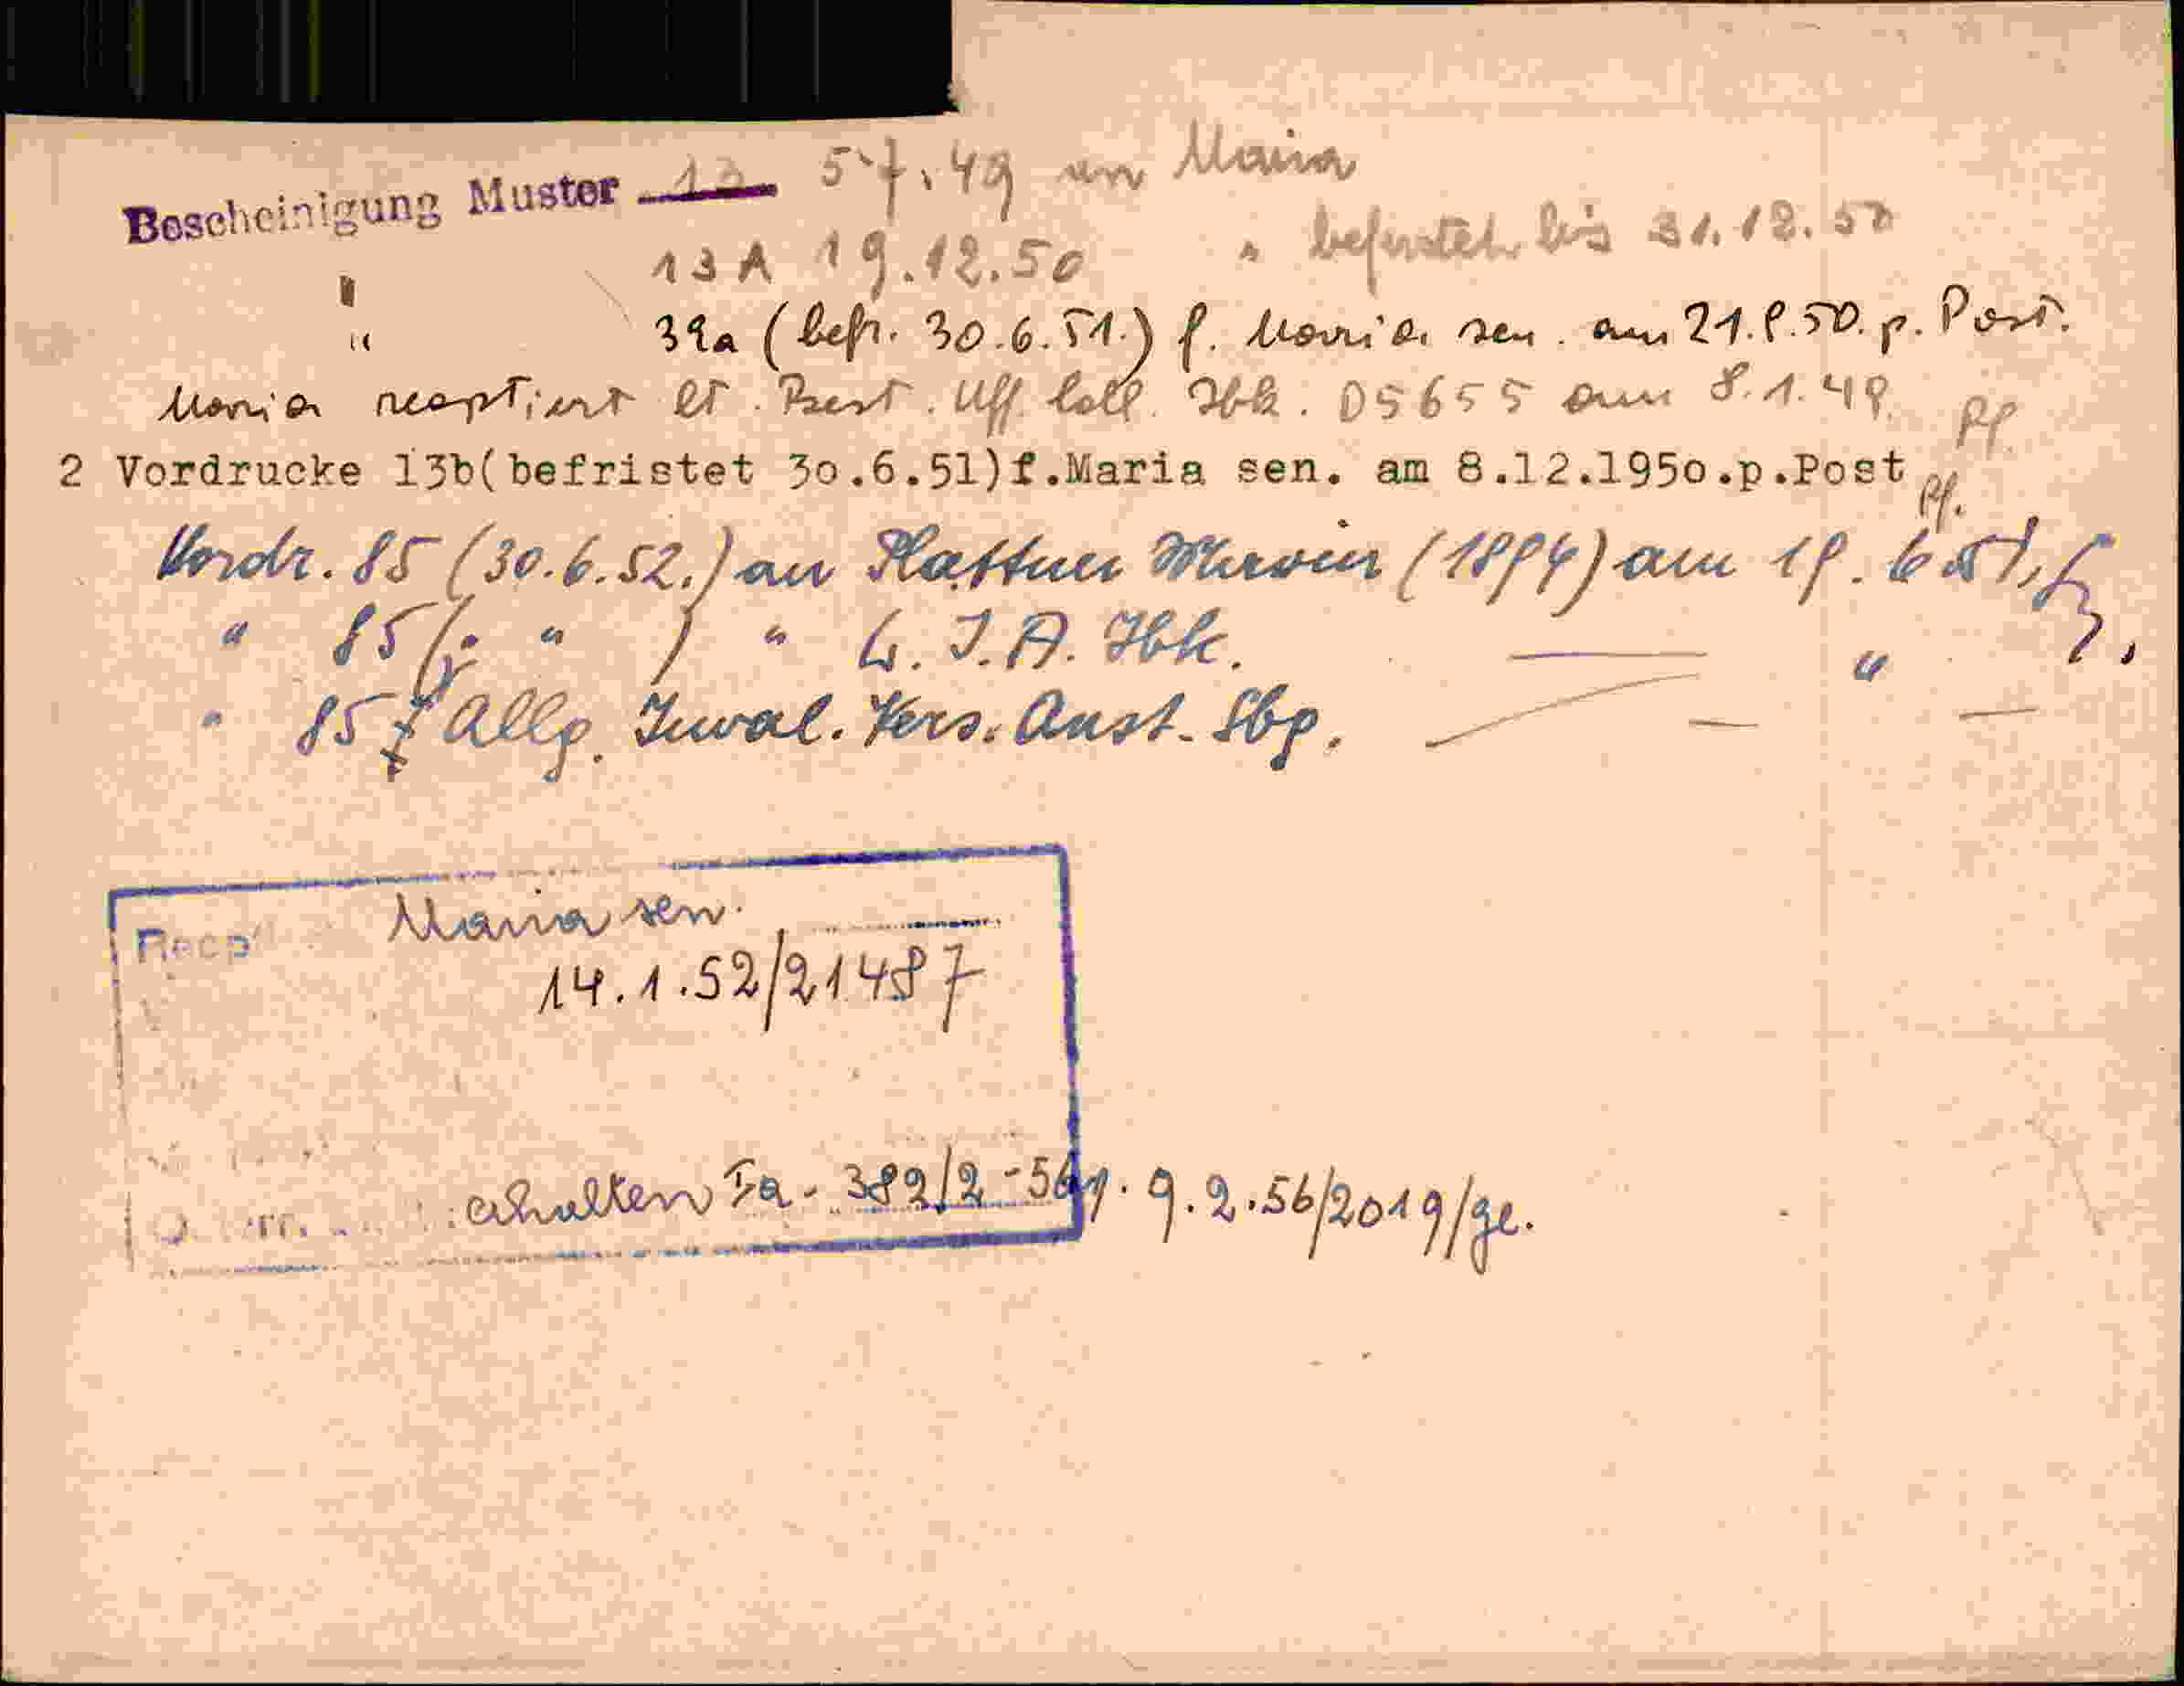 Bescheinigung Muster 13 5.7.49 an Maria
" 13 A 19.12.50 " befristet bis 31.12.50
" 39a (befr. 30.6.51.) f. Maria sen. am 21.8.50. p. Post.
Maria reoptiert lt. Best. Uff. coll. Ibk. 05655 am 8.1.49.
2 Vordrucke 13b(befristet 30.6.51)f.Maria sen. am 8.12.1950.p.Post
Vordr. 85 (30.6.52.) an Plattner Maria (1894) am 18.6.51.
" 85 ( " ) " L. I. A. Ibk. — "
" 85 f Allg. Inval. Vers. Anst. Sbg. — —
Maria sen.
14.1.52/21487
erhalten Fa. 382/2-56 9.2.56/2019/ge.